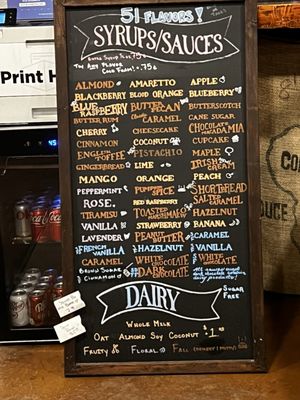 Print H
51 FLAVORS!
SYRUPS/SAUCES
ALMOND AMARETTO APPLE
BLACKBERRY BLOOD ORANGE BLUEBERRY
BLUE RASPBERRY BUTTER PECAN BUTTERSCOTCH
BUTTER RUM CARAMEL CANE SUGAR
CHERRY CHEESECAKE CHOCOLATE MACADAMIA
CINNAMON COCONUT CUPCAKE
ENGLISH TOFFEE PISTACHIO MAPLE
GINGERBREAD LIME IRISH CREAM
MANGO ORANGE PEACH
PEPPERMINT PUMPKIN SPICE SHORTBREAD
ROSE RED RASPBERRY SALTED CARAMEL
TIRAMISU TOASTED MARSHMALLOW HAZELNUT
VANILLA STRAWBERRY BANANA
LAVENDER PEANUT BUTTER CARAMEL
FRENCH VANILLA HAZELNUT VANILLA
CARAMEL WHITE CHOCOLATE WHITE CHOCOLATE
BROWN SUGAR CINNAMON DARK CHOCOLATE
SUGAR FREE
DAIRY
WHOLE MILK
OAT ALMOND SOY COCONUT $1
FRUITY FLORAL FALL